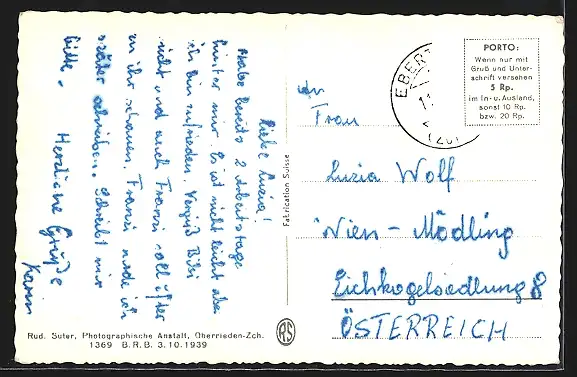 Liebe Luzia!
Habe bereits 2 Arbeitstage
hinter mir. Es ist nicht leicht aber
ich bin zufrieden. Vergiß Bibi
nicht und auch Franzi soll öfter
zu ihr schauen. Franzi werde ich
später schreiben. Schreibt mir
bitte.
Herzliche Grüße
Karin
Rud. Suter, Photographische Anstalt, Oberrieden-Zch.
1369 B.R.B. 3.10.1939
Fabrication Suisse
RS
EBERT
PORTO:
Wenn nur mit
Gruß und Unter-
schrift versehen
5 Rp.
im In- u. Ausland,
sonst 10 Rp.
bzw. 20 Rp.
An
Frau
Luzia Wolf
Wien - Mödling
Eichkogelsiedlung 8
ÖSTERREICH